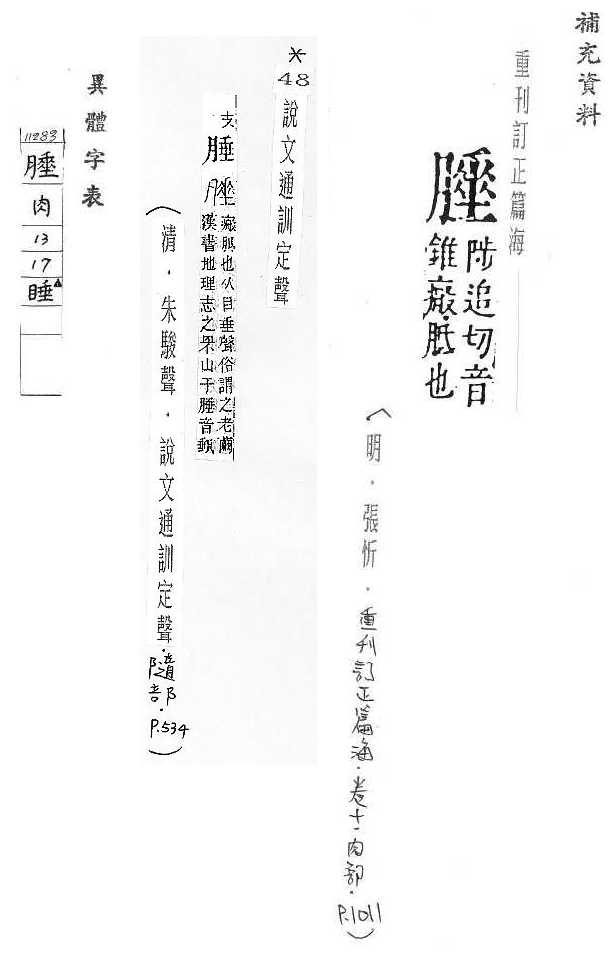 補充資料
重刊訂正篇海
陟追切音
錐瘢胝也
（明．張忻．重刊訂正篇海．卷十一肉部．P.1011）
＊
48
說文通訓定聲
支
腄
瘢胝也从肉垂聲俗謂之老繭
漢書地理志之罘山于腄音
（清．朱駿聲．說文通訓定聲．隨部．P.534）
異體字表
11283
肉
13
17
腄